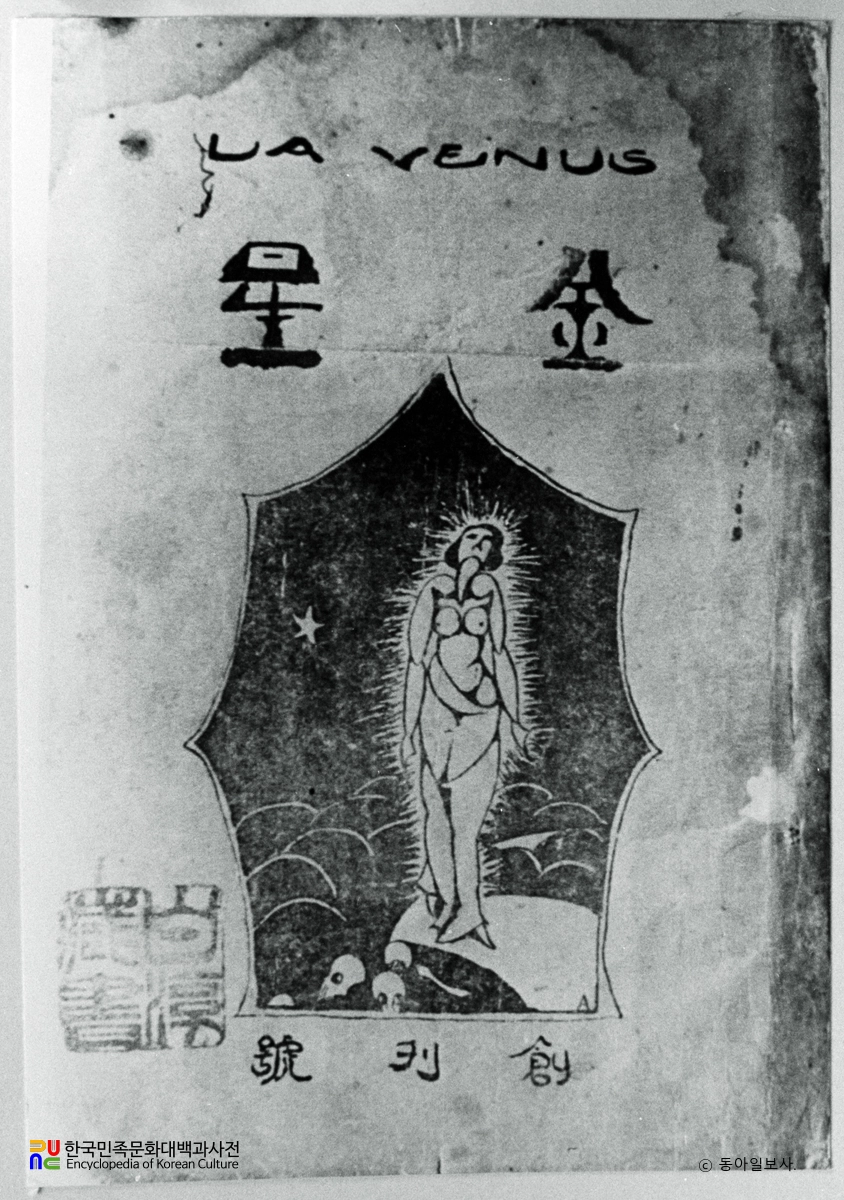 LA VENUS
金星
A
創刊號
한국민족문화대백과사전
Encyclopedia of Korean Culture
ⓒ 동아일보사.